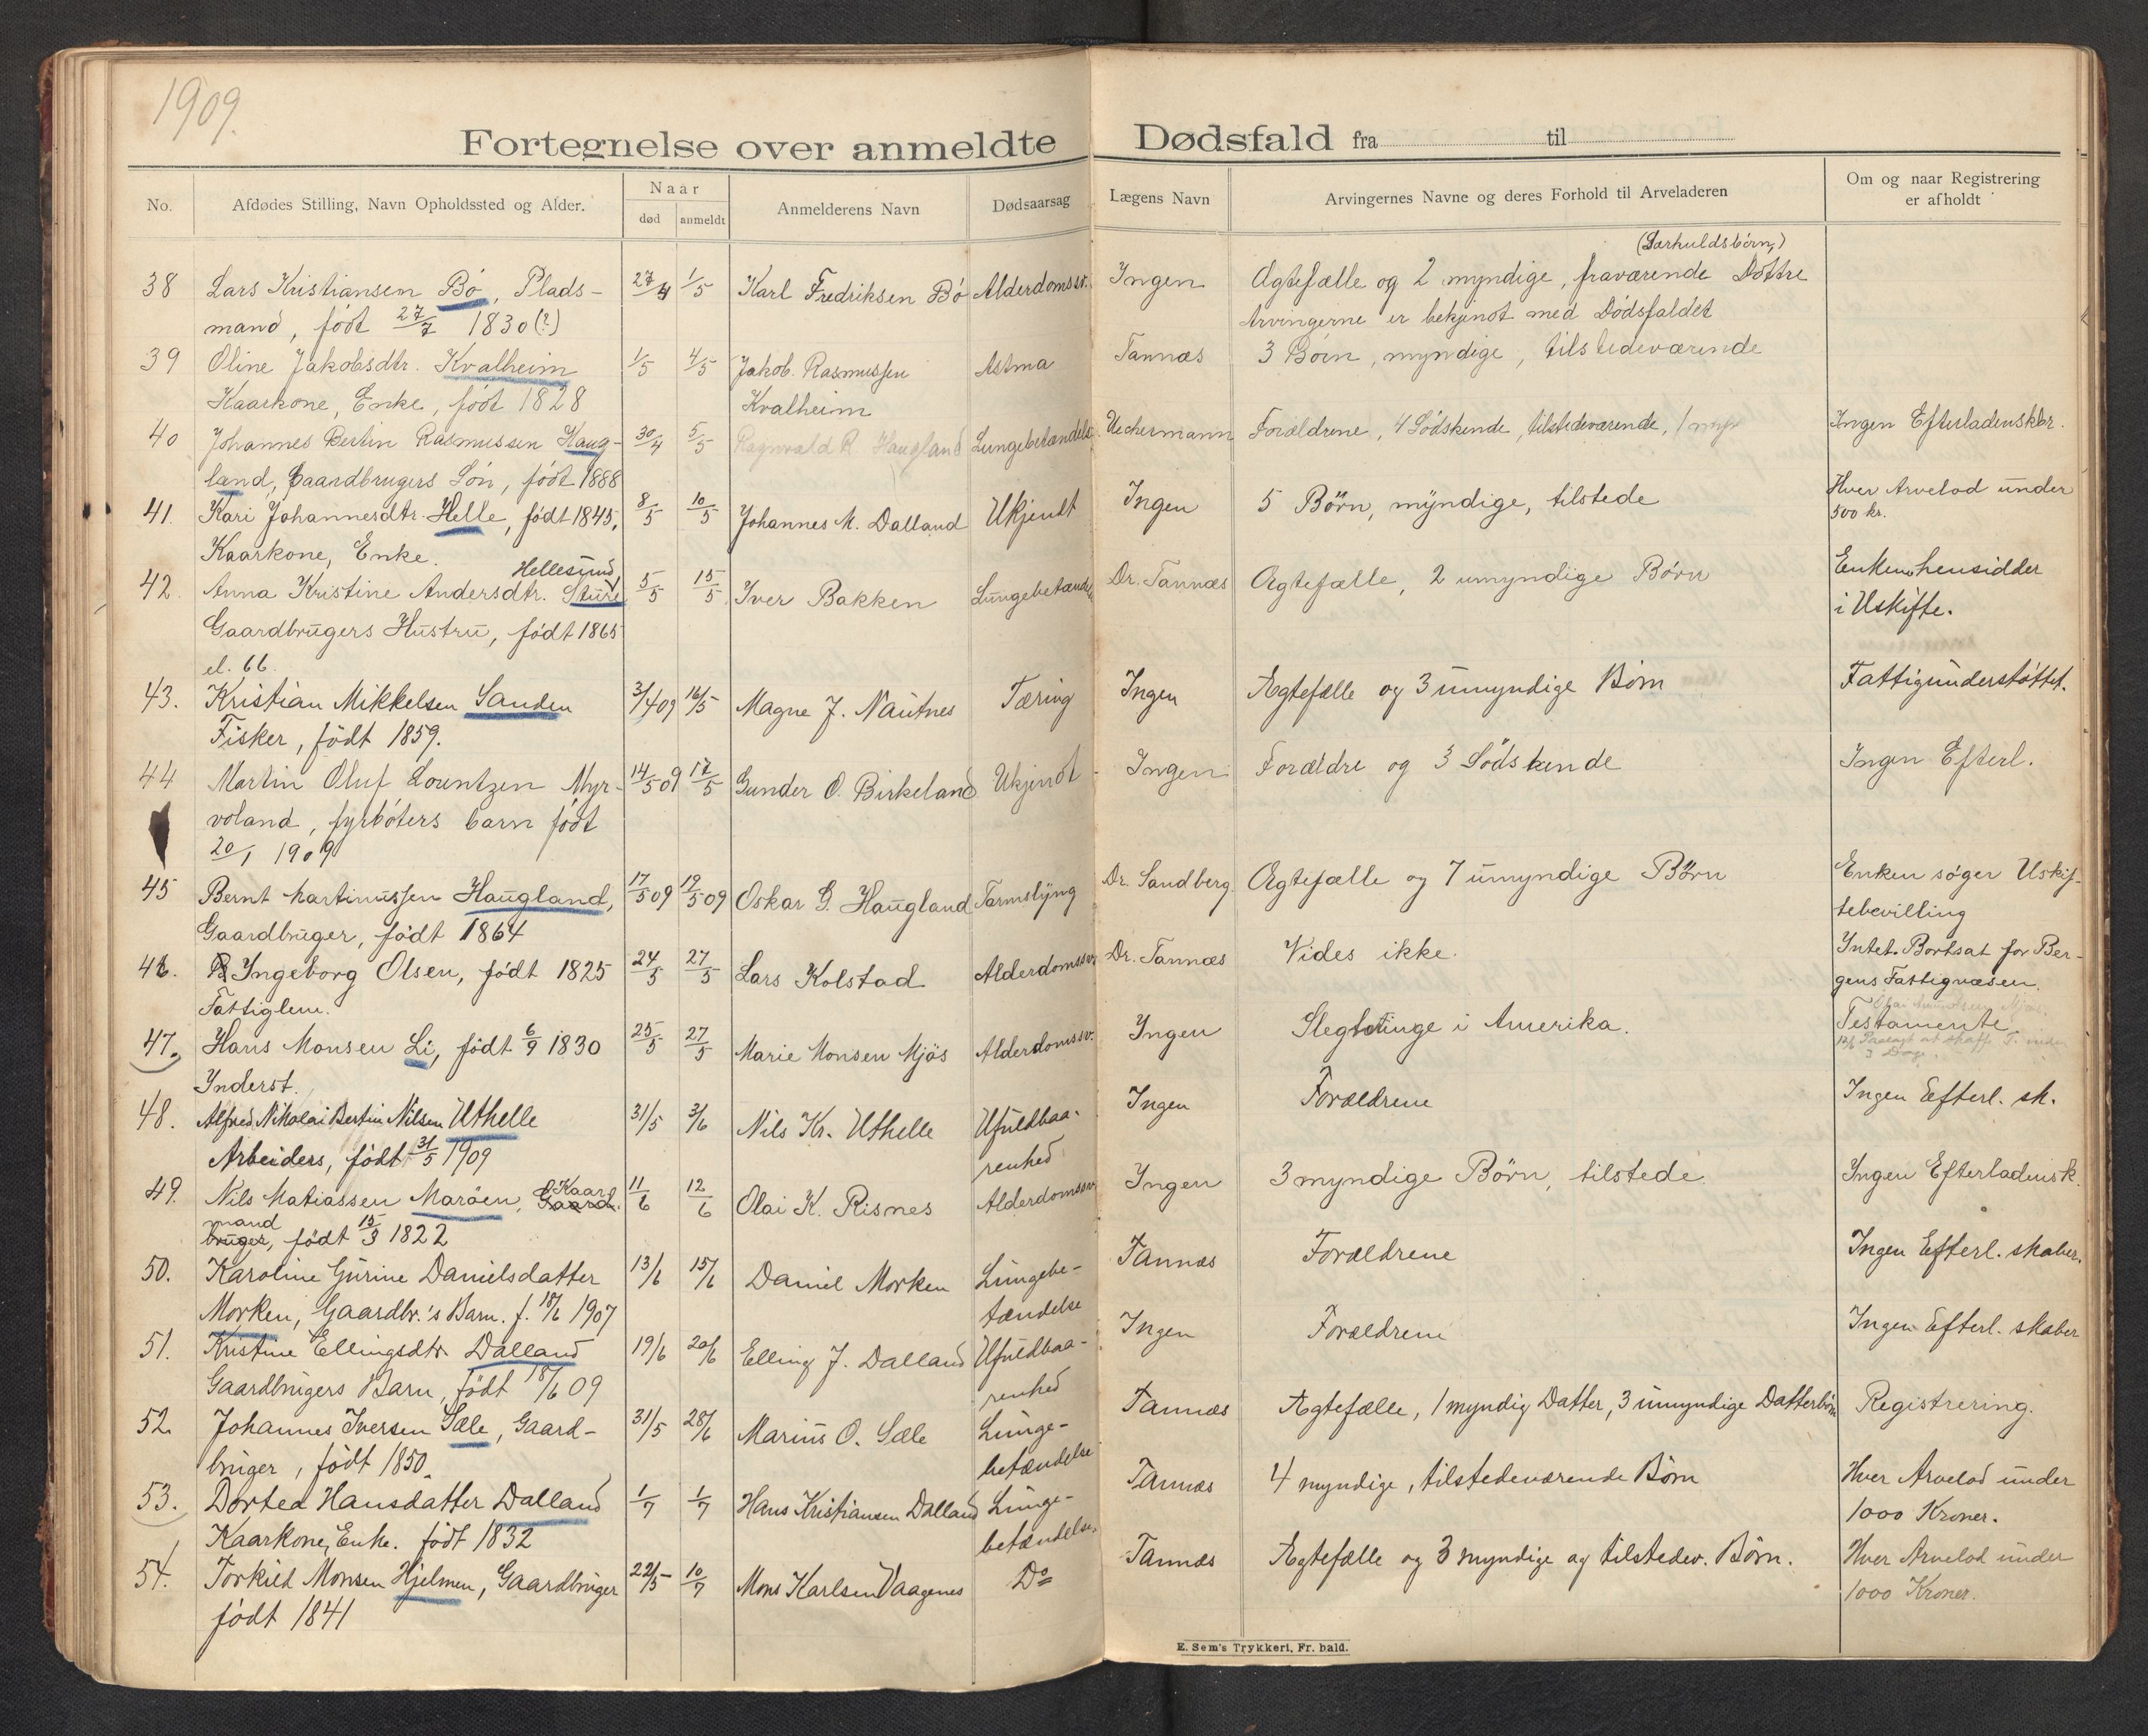 1909.
Fortegnelse over anmeldte Dødsfald fra til
No. Afdødes Stilling, Navn Opholdssted og Alder. Naar død anmeldt Anmelderens Navn Dødsaarsag Lægens Navn Arvingernes Navne og deres Forhold til Arveladeren Om og naar Registrering er afholdt
38 Lars Kristiansen Bø, Plads- 27/4 1/5 Karl Fredriksen Bø Alderdomssv. Ingen Ægtefælle og 2 myndige, fraværende Døttre
mand, født 27/7 1830(?) Arvingerne er bekjendt med Dødsfaldet
39 Oline Jakobsdtr. Kvalheim 1/5 4/5 Jakob Rasmussen Astma Tannæs 3 Børn, myndige, tilstedeværende
Kaarkone, Enke, født 1828 Kvalheim
40 Johannes Bertin Rasmussen Haug- 30/4 5/5 Ragnvald R. Haugland Lungebetændels. Uchermann Forældrene, 4 Södskende, tilstedeværende, 1 Ingen Efterladenskbr.
land, Gaardbrugers Søn, født 1888
41. Kari Johannesdtr. Helle, født 1845, 8/5 10/5 Johannes M. Dalland Ukjendt Ingen 5 Børn, myndige, tilstede Hver Arvelod under
Kaarkone, Enke. 500 kr.
Hellesund
42. Anna Kristine Andersdtr. Sture 5/5 15/5 Iver Bakken Lungebetænd Dr. Tannæs Ægtefælle, 2 umyndige Børn hensidder
Gaardbrugers Hustru, født 1865 i Uskifte.
el. 66.
43. Kristian Mikkelsen Sanden 3/4 09 16/5 Magne J. Nautnes Tæring Ingen Ægtefælle og 3 umyndige Børn Fattigunderstøttet.
Fisker, født 1859.
44 Martin Oluf Lorentzen Myr- 14/5 09 17/5 Gunder O. Birkeland Ukjendt Ingen Forældre og 3 Södskende Ingen Efterl.
voland, fyrbøters barn født
20/1 1909
45 Bernt Martinussen Haugland, 17/5 09 19/5 09 Oskar G. Haugland Tarmslyng Dr. Sandberg. Ægtefælle og 7 umyndige Børn Enken søger Uskif-
Gaardbruger, født 1864 tebevilling
46. Ingeborg Olsen, født 1825 24/5 27/5 Lars Kolstad Alderdomssv. Dr. Tannæs Vides ikke. Intet. Bortsat for Ber-
Fattiglem. gens Fattigvæsen.
47. Hans Monsen Li, født 6/9 1830 25/5 27/5 Marie Monsen Mjøs Alderdomssv. Ingen Slegtninge i Amerika. Testamente.
Inderst.
48. Alfred Nikolai Bertin Nilsen Uthelle 31/5 3/6 Nils Kr. Uthelle Ufuldbaa- Ingen Forældrene Ingen Efterl. sk.
Arbeiders, født 31/5 1909 renhed
49. Nils Matiassen Marøen, Kaar Gaard. 11/6 12/6 Olai K. Risnes Alderdomssv Ingen 3 myndige Børn, tilstede Ingen Efterladensk.
mand
bruger, født 15/3 1822
50. Karoline Gurine Danielsdatter 13/6 15/6 Daniel Morken Lungebe- Tannæs Forældrene Ingen Efterl. skaber.
Morken, Gaardbr.'s Barn. f. 18/6 1907 tændelse
51. Kristine Ellingsdtr Dalland 19/6 20/6 Elling J. Dalland Ufuldbaa- Ingen Forældrene Ingen Efterl. skaber
Gaardbrugers Barn, født 18/6 09 renhed
52. Johannes Iversen Sæle, Gaard- 31/5 28/6 Marius O. Sæle Lunge- Tannæs Ægtefælle, 1 myndig Datter, 3 umyndige Datterbørn Registrering.
bruger, født 1850. betændelse
53. Dortea Hansdatter Dalland 1/7 1/7 Hans Kristiansen Dalland Lunge- Tannæs 4 myndige, tilstedeværende Børn Hver Arvelod under
Kaarkone, Enke. født 1832 betændelse. 1000 Kroner.
54. Torkild Monsen Hjelmen, Gaardbruger 22/5 10/7 Mons Karlsen Vaagenes Do Tannæs Ægtefælle og 3 myndige og tilstedev. Børn. Hver Arvelod under
født 1841 1000 Kroner.
E. Sem's Trykkeri, Fr.hald.